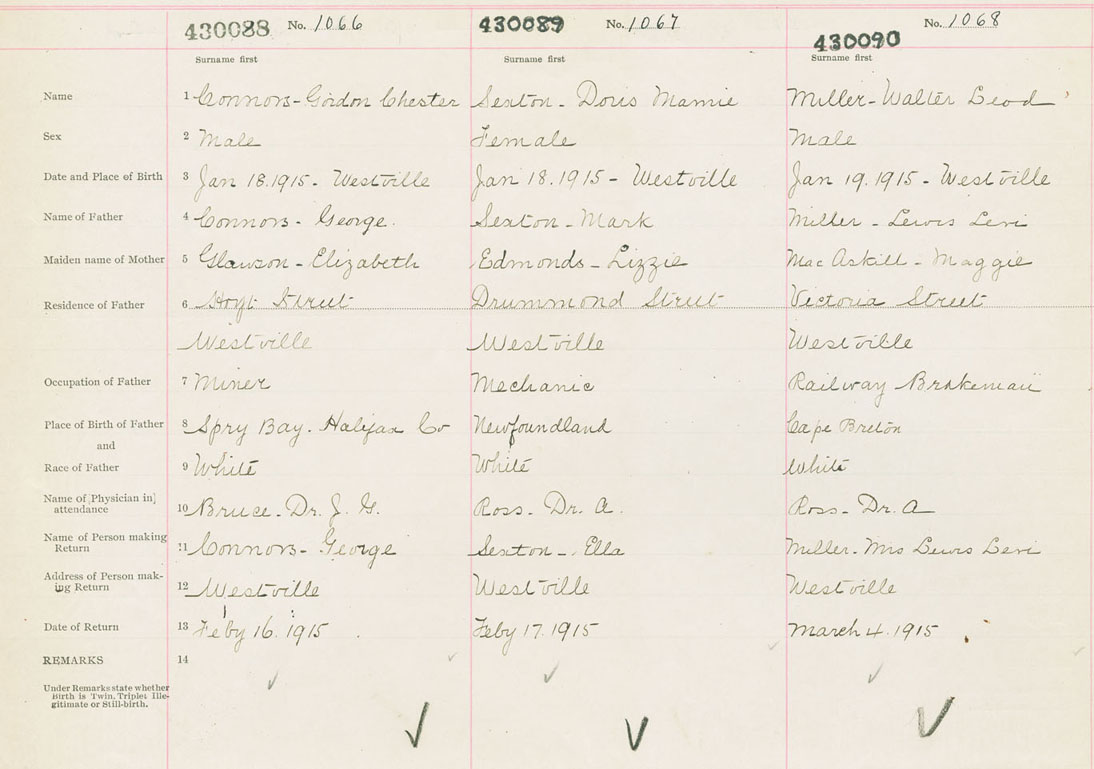 430088 No. 1066 430089 No. 1067 430090 No. 1068
Surname first Surname first Surname first
Name 1 Connors - Gordon Chester Sexton - Doris Mamie Miller - Walter Leod
Sex 2 Male Female Male
Date and Place of Birth 3 Jan 18. 1915 - Westville Jan 18. 1915 - Westville Jan 19. 1915 - Westville
Name of Father 4 Connors - George. Sexton - Mark Miller - Lewis Levi
Maiden name of Mother 5 Glawson - Elizabeth Edmonds - Lizzie MacAskill - Maggie
Residence of Father 6 Hoyt Street Drummond Street Victoria Street
Westville Westville Westville
Occupation of Father 7 Miner Mechanic Railway Brakeman
Place of Birth of Father 8 Spry Bay. Halifax Co Newfoundland Cape Breton
and
Race of Father 9 White White White
Name of Physician in attendance 10 Bruce - Dr. J. G. Ross - Dr. A. Ross - Dr. A
Name of Person making Return 11 Connors - George Sexton - Ella Miller - Mrs Lewis Levi
Address of Person making Return 12 Westville Westville Westville
Date of Return 13 Feby 16. 1915 Feby 17. 1915 March 4. 1915
REMARKS 14
Under Remarks state whether
Birth is Twin, Triplet Ille-
gitimate or Still-birth.